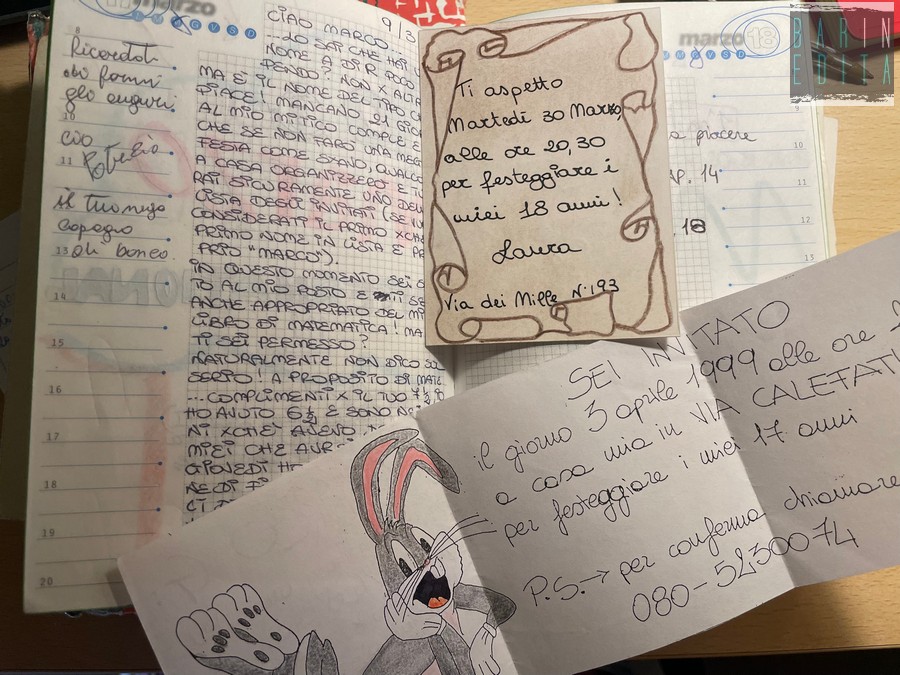 marzo
8
Ricordati
di farmi
gli auguri.
10
11
il tuo
13 di banco.
14
15
16
17
18
19
20
CIAO MARCO... 9/3
...LO SAI CHE HAI U
NOME A DIR POCO
MA È IL NOME DEL TIPO CH
PIACE! MANCANO 21 GIOR
AL MIO MITICO COMPLE E
CHE SE NON FARÒ UNA MEG
FESTA COME STANO, QUALCO
A CASA ORGANIZZERÒ E TU
RAI SICURAMENTE UNO DEI
LISTA DEGLI INVITATI (SE
CONSIDERATI IL PRIMO XCHÈ
PRIMO NOME IN LISTA È PR
PRIO "MARCO").
IN QUESTO MOMENTO SEI
TO AL MIO POSTO E
ANCHE APPROPRIATO DEL MI
LIBRO DI MATEMATICA! MA
TI SEI PERMESSO?
NATURALMENTE NON DICO SUL
SERIO! A PROPOSITO DI MATE
...COMPLIMENTI X IL TUO 7½
HO AVUTO 6½ E SONO
NI XCHÈ AVEVO
MIEI CHE AVR
GIOVEDÌ HO
Ti aspetto
Martedì 30 Marzo,
alle ore 20,30
per festeggiare i
miei 18 anni!
Laura
Via dei Mille N° 193
marzo
piacere
10
AP. 14
11
12
.18
13
BARIN
EDITA
SEI INVITATO
il giorno 3 aprile 1999 alle ore
a casa mia in VIA CALEFATI
per festeggiare i miei 17 anni
P.S.→ per conferma chiamare
080-5230074